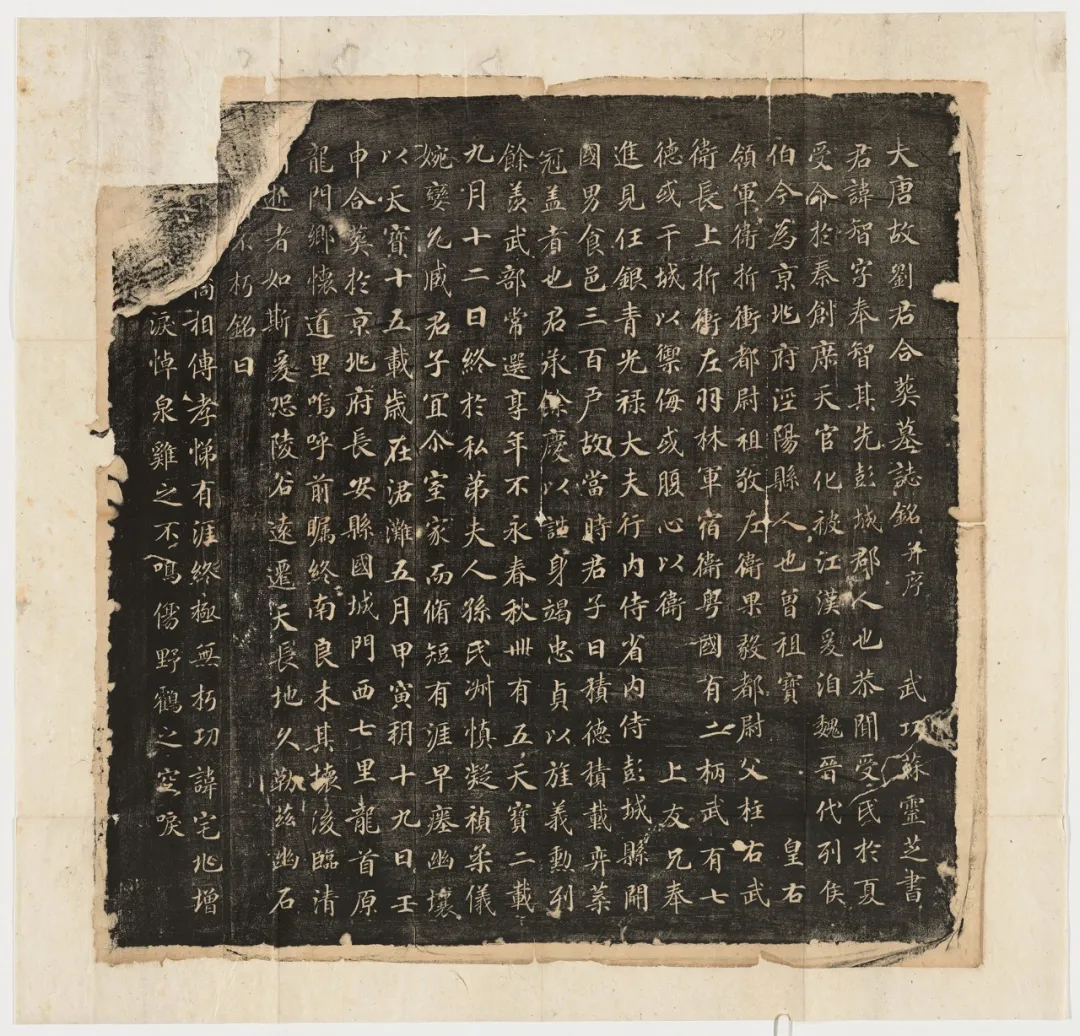 大唐故劉君合葬墓誌銘并序 武功蘇靈芝書
君諱智字奉智其先彭城郡人也恭聞受氏於夏
受命於秦創席天官化被江漢爰洎魏晉代列侯
伯今為京兆府涇陽縣人也曾祖寶 皇右
領軍衛折衝都尉祖敬左衛果毅都尉父柱右武
衛長上折衝左羽林軍宿衛粵國有二柄武有七
德或干城以禦侮或腹心以衛 上友兄奉
進見任銀青光祿大夫行內侍省內侍彭城縣開
國男食邑三百戶故當時君子曰積德積載弈葉
冠蓋者也君承餘慶以誼身竭忠貞以旌義勳列
餘羨武部常選享年不永春秋卌有五天寶二載
九月十二日終於私第夫人孫氏洲慎凝禎柔儀
婉孌允臧君子宜尒室家而脩短有涯早瘞幽壤
以天寶十五載歲在涒灘五月甲寅朔十九日壬
申合葬於京兆府長安縣國城門西七里龍首原
龍門鄉懷道里嗚呼前矚終南良木其壞後臨清
逝者如斯爰恐陵谷遠遷天長地久勒茲幽石
不朽銘曰
相傳孝悌有涯終極無朽功諱宅兆增
淚悼泉雞之不鳴傷野鶴之空唳